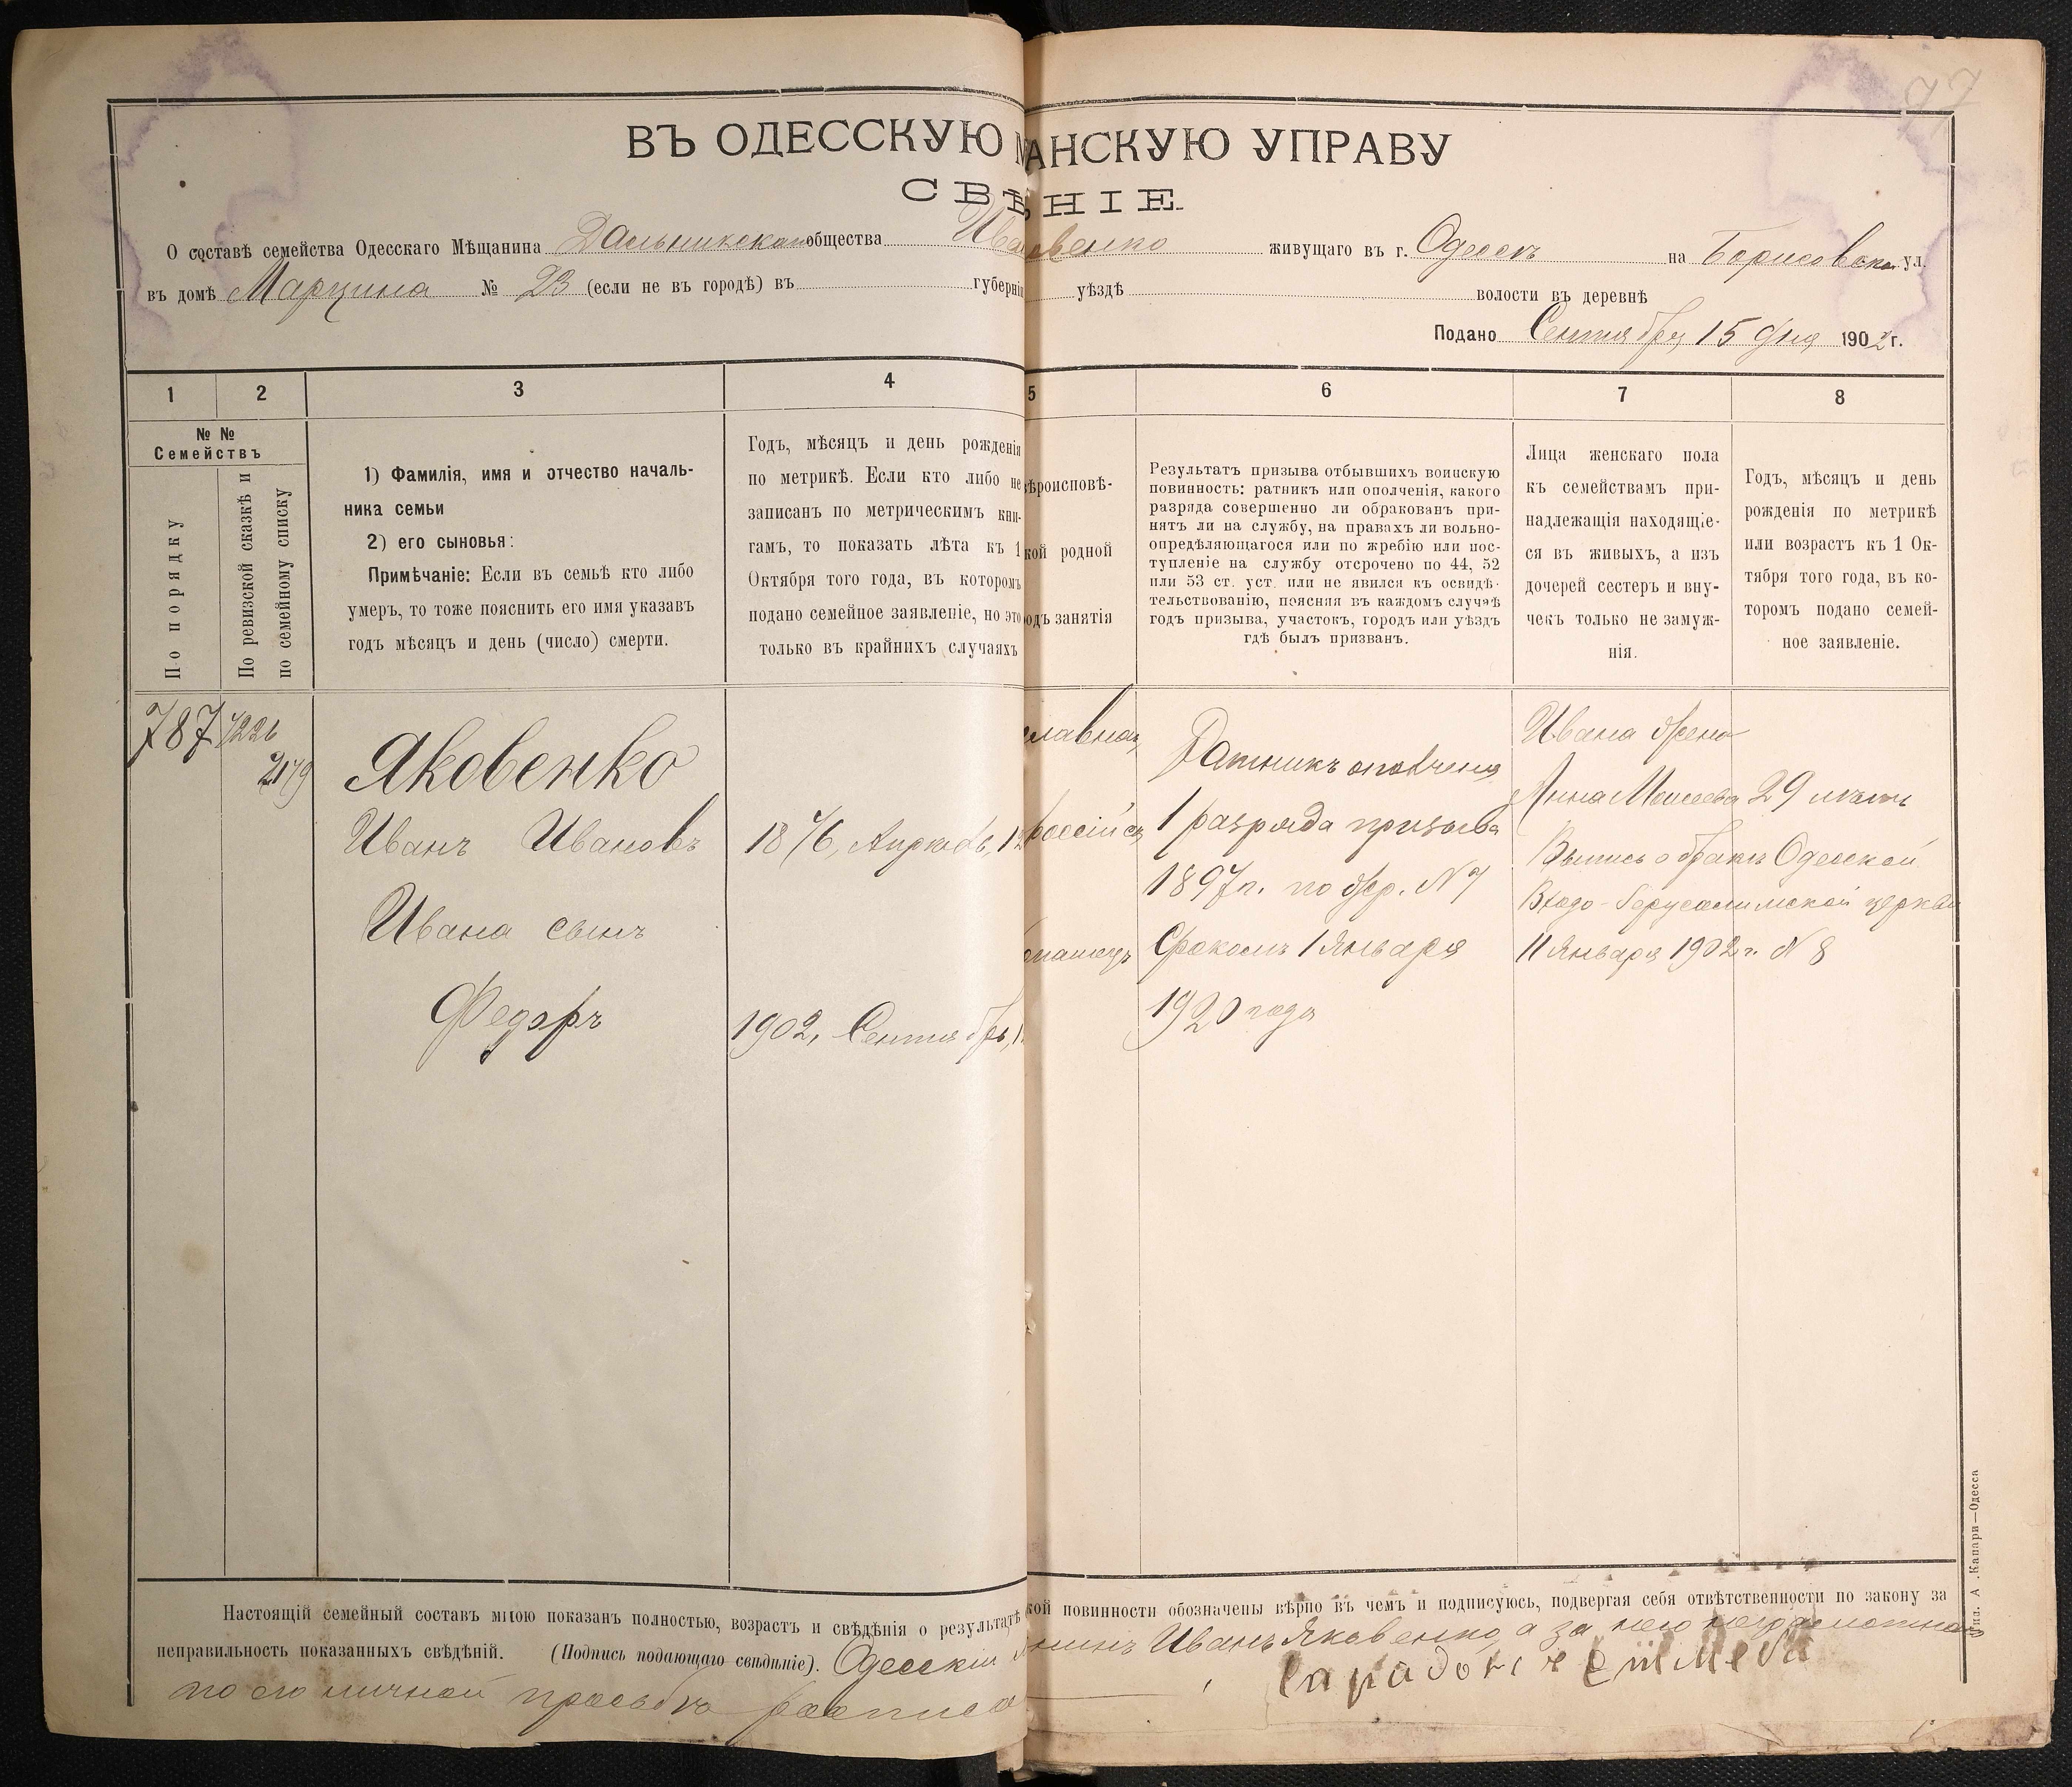 77
ВЪ ОДЕССКУЮ АНСКУЮ УПРАВУ
СВѢНІЕ
О составѣ семейства Одесскаго Мѣщанина Дальникскаго общества живущаго въ г. Одессѣ на Борисовской ул.
въ домѣ № 23 (если не въ городѣ) въ губерніи уѣздѣ волости въ деревнѣ
Подано Сентября 15 дня 1902 г.
1 2 3 4 5 6 7 8
№ №
Семействъ
По порядку
По ревизской сказкѣ и
по семейному списку
1) Фамилія, имя и отчество началь-
ника семьи
2) его сыновья:
Примѣчаніе: Если въ семьѣ кто либо
умеръ, то тоже пояснить его имя указавъ
годъ мѣсяцъ и день (число) смерти.
Годъ, мѣсяцъ и день рожденія
по метрикѣ. Если кто либо не
записанъ по метрическимъ кни-
гамъ, то показать лѣта къ 1
Октября того года, въ которомъ
подано семейное заявленіе, но это
только въ крайнихъ случаяхъ
ѣроисповѣ-
кой родной
одъ занятія
Результатъ призыва отбывшихъ воинскую
повинность: ратникъ или ополченія, какого
разряда совершенно ли обракованъ при-
нятъ ли на службу, на правахъ ли вольно-
опредѣляющагося или по жребію или пос-
тупленіе на службу отсрочено по 44, 52
или 53 ст. уст. или не явился къ освидѣ-
тельствованію, поясняя въ каждомъ случаѣ
годъ призыва, участокъ, городъ или уѣздъ
гдѣ былъ призванъ.
Лица женскаго пола
къ семействамъ при-
надлежащія находящіе-
ся въ живыхъ, а изъ
дочерей сестеръ и вну-
чекъ только не замуж-
нія.
Годъ, мѣсяцъ и день
рожденія по метрикѣ
или возрастъ къ 1 Ок-
тября того года, въ ко-
торомъ подано семей-
ное заявленіе.
787
Яковенко
Иванъ Ивановъ
1876, Апрѣль, 12
Ивана сынъ
Федоръ
1902, Сентябрь, 1
славная
россійск
Ратникъ ополченія
1 разряда призыва
1897 г. по жер. № 7
Срокомъ 1 Января
1920 года
Ивана жена
Анна Моисеева 29 лѣтъ
Выпись о бракѣ Одесской
Входо-Іерусалимской церкви
11 Января 1902 г. № 8
Настоящій семейный составъ мною показанъ полностью, возрастъ и свѣдѣнія о результатѣ кой повинности обозначены вѣрно въ чемъ и подписуюсь, подвергая себя отвѣтственности по закону за
неправильность показанныхъ свѣдѣній. (Подпись подающаго свѣдѣніе). Одесскій Иванъ Яковенко, а за него неграмотнаго
по его личной просьбѣ росписа
Капари—Одесса